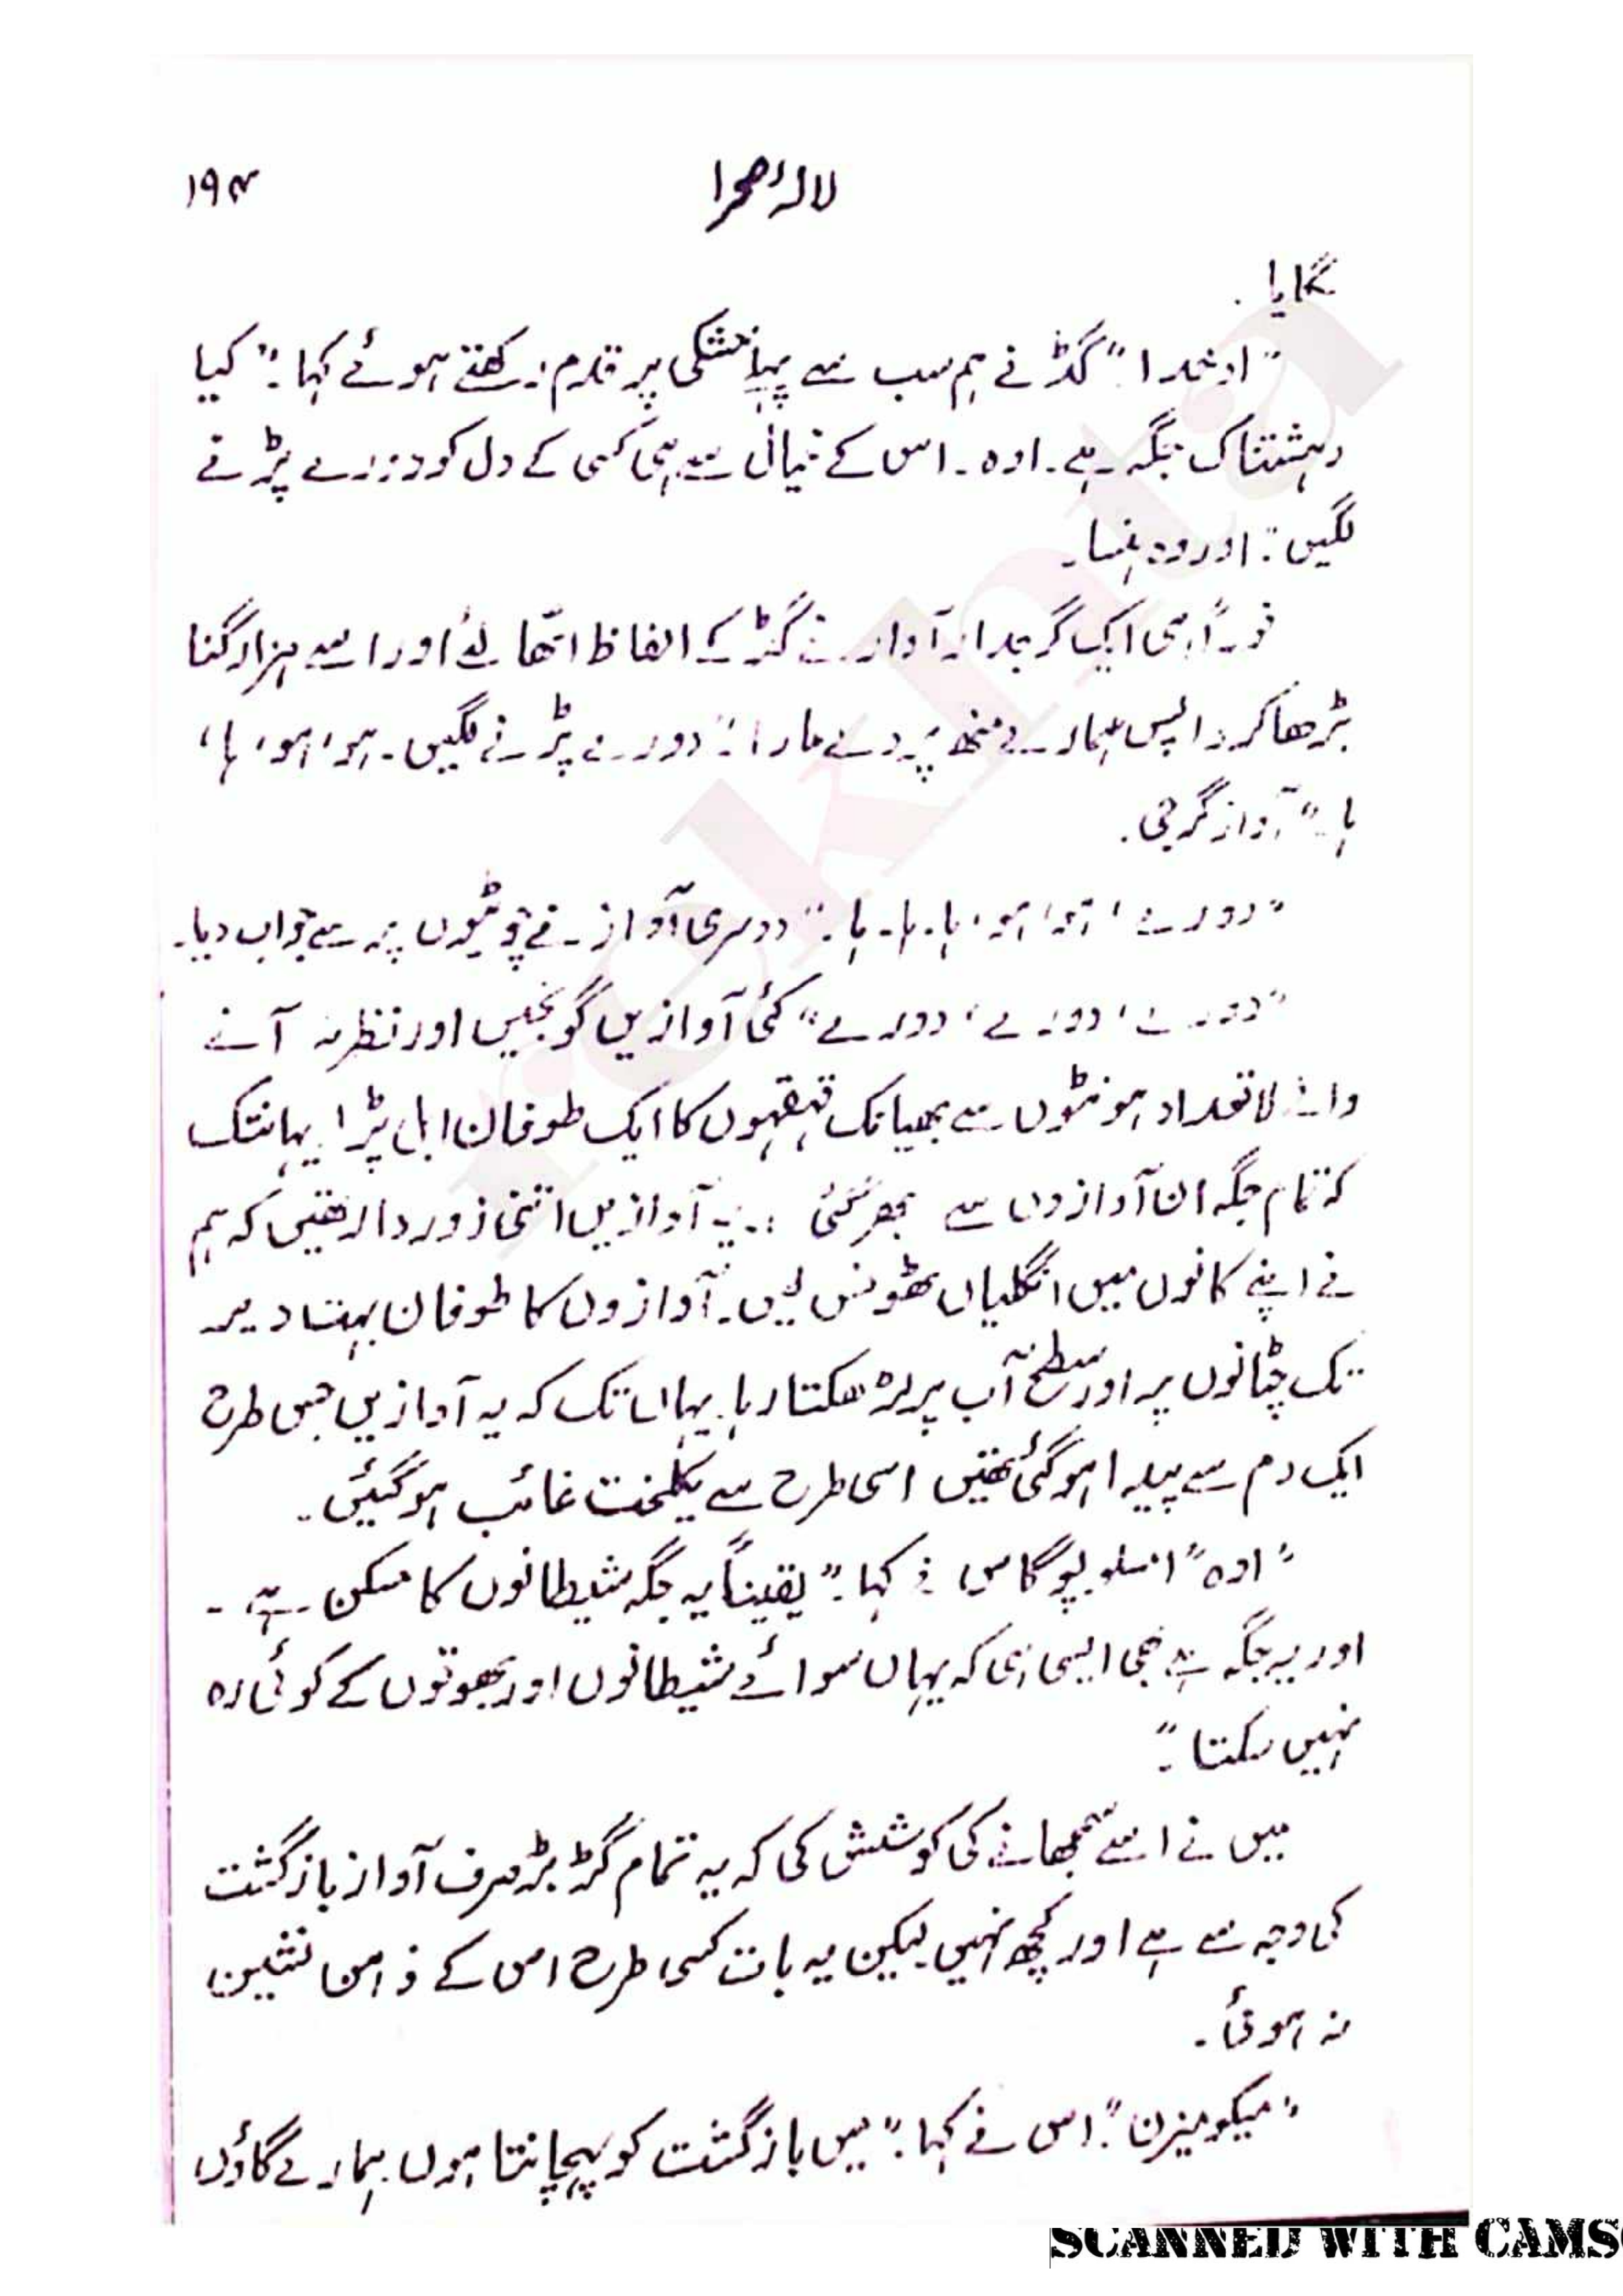 لالۂ صحرا ۱۹۴
لگایا.
"او خدا." گڈ نے ہم سب سے پہلے خشکی پر قدم رکھتے ہوئے کہا." کیا
دہشتناک جگہ ہے۔ اوہ۔ اس کے خیال سے ہی کسی کے دل کو دورے پڑنے
لگیں." اور وہ ہنسا۔
فوراً ہی ایک گرجدار آواز نے گڈ کے الفاظ اٹھا لئے اور اسے ہزار گنا
بڑھا کر واپس ہمارے منھ پر دے مارا." دورے پڑنے لگیں۔ ہو، ہو، ہا،
ہا۔" آواز گرجی.
"دورے، ہو، ہو، ہا۔ ہا۔ ہا۔" دوسری آواز نے چوٹیوں پر سے جواب دیا۔
"دورے، دورے، دورے" کئی آوازیں گونجیں اور نظر نہ آنے
والے لا تعداد ہونٹوں سے بھیانک قہقہوں کا ایک طوفان ابل پڑا یہانتک
کہ تمام جگہ ان آوازوں سے بھر گئی ... یہ آوازیں اتنی زوردار تھیں کہ ہم
نے اپنے کانوں میں انگلیاں ٹھونس لیں۔ آوازوں کا طوفان بہت دیر
تک چٹانوں پر اور سطح آب پر لڑھکتا رہا۔ یہاں تک کہ یہ آوازیں جس طرح
ایک دم سے پیدا ہو گئی تھیں اسی طرح سے یکلخت غائب ہو گئیں۔
"اوہ" امسلوپوگاس نے کہا." یقیناً یہ جگہ شیطانوں کا مسکن ہے۔
اور یہ جگہ ہے بھی ایسی ہی کہ یہاں سوائے شیطانوں اور بھوتوں کے کوئی رہ
نہیں سکتا۔"
میں نے اسے سمجھانے کی کوشش کی کہ یہ تمام گڑبڑ صرف آواز بازگشت
کی وجہ سے ہے اور کچھ نہیں لیکن یہ بات کسی طرح اس کے ذہن نشین
نہ ہوئی۔
"میکومیزن". اس نے کہا." میں بازگشت کو پہچانتا ہوں. ہمارے گاؤں
rekhta
SCANNED WITH CAMS